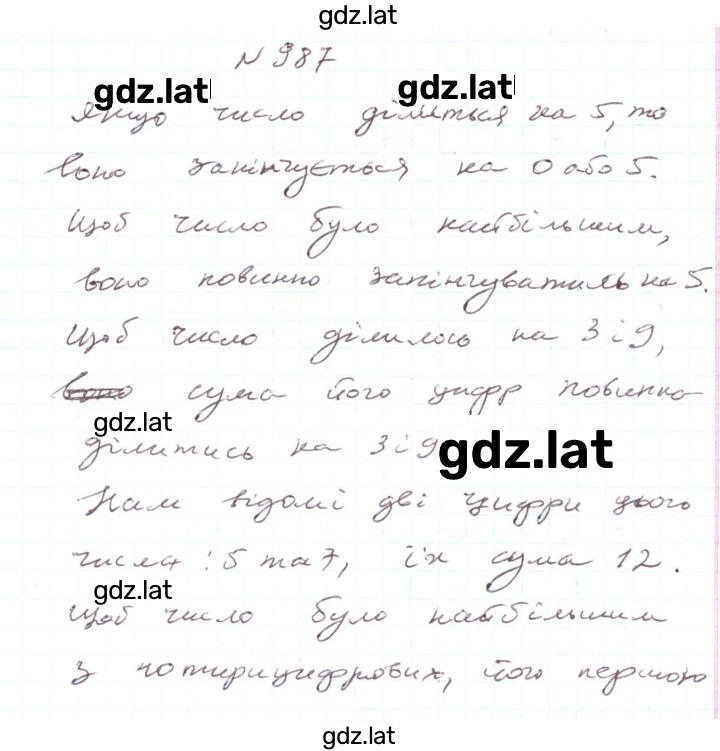 gdz.lat
N 987
gdz.lat gdz.lat
Якщо число ділиться на 5, то
воно закінчується на 0 або 5.
Щоб число було найбільшим,
воно повинно закінчуватись на 5.
Щоб число ділилось на 3 і 9,
сума його цифр повинна
gdz.lat
ділитись на 3 і 9
gdz.lat
Нам відомі дві цифри цього
числа: 5 та 7, їх сума 12.
gdz.lat
Щоб число було найбільшим
з чотирицифрових, його першою
gdz.lat